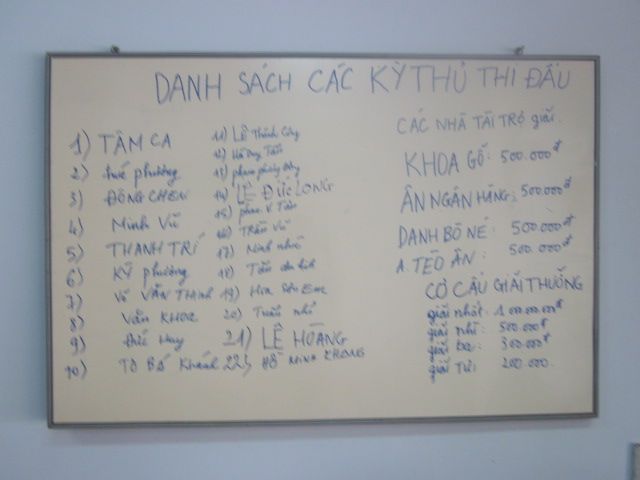 DANH SÁCH CÁC KỲ THỦ THI ĐẤU
1) TÂM CA
2) Huế phường
3) ĐÔNG CHEN
4) Minh Vũ
5) THANH TRÍ
6) KỸ phường
7) Võ VĂN THANH
8) VĂN KHOA
9) Đức Huy
10) TÔ BÁ Khánh
11) Lê Thành Công
12) Hà Duy Tấn
13)
14) LÊ ĐỨC LONG
15) phan. V. Tân
16) Trần Vũ
17) Minh nhí
18) Tấn
19) Hứa
20) Tuấn nhỏ
21) LÊ HOÀNG
22) HỒ MINH KHONG
CÁC NHÀ TÀI TRỢ giải.
KHOA GỖ: 500.000đ
ÂN NGÂN HÀNG: 500.000đ
DANH BÒ NÉ: 500.000đ
A. TÈO ÂN: 500.000đ
CƠ CẤU GIẢI THƯỞNG
giải nhất: 1.000.000đ
giải nhì: 500.000đ
giải ba: 300.000đ
giải Tư: 200.000.